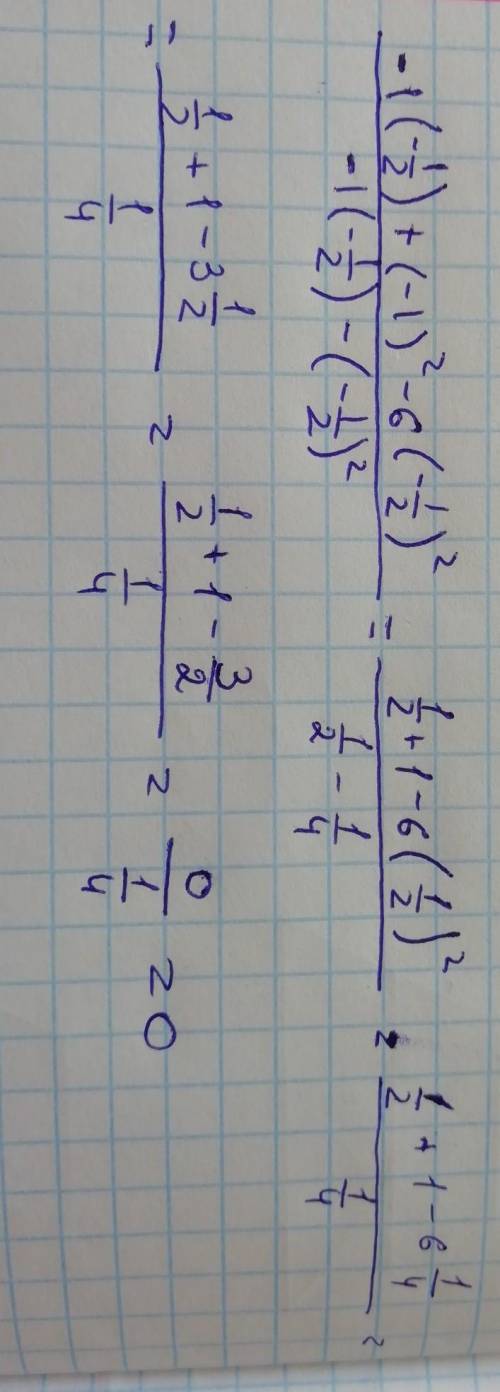 \frac{-1(-\frac{1}{2})+(-1)^2-6(-\frac{1}{2})^2}{-1(-\frac{1}{2})-(-\frac{1}{2})^2} = \frac{\frac{1}{2}+1-6(\frac{1}{2})^2}{\frac{1}{2}-\frac{1}{4}} = \frac{\frac{1}{2}+1-6\frac{1}{4}}{\frac{1}{4}} =
= \frac{\frac{1}{2}+1-3\frac{1}{2}}{\frac{1}{4}} = \frac{\frac{1}{2}+1-\frac{3}{2}}{\frac{1}{4}} = \frac{0}{\frac{1}{4}} = 0